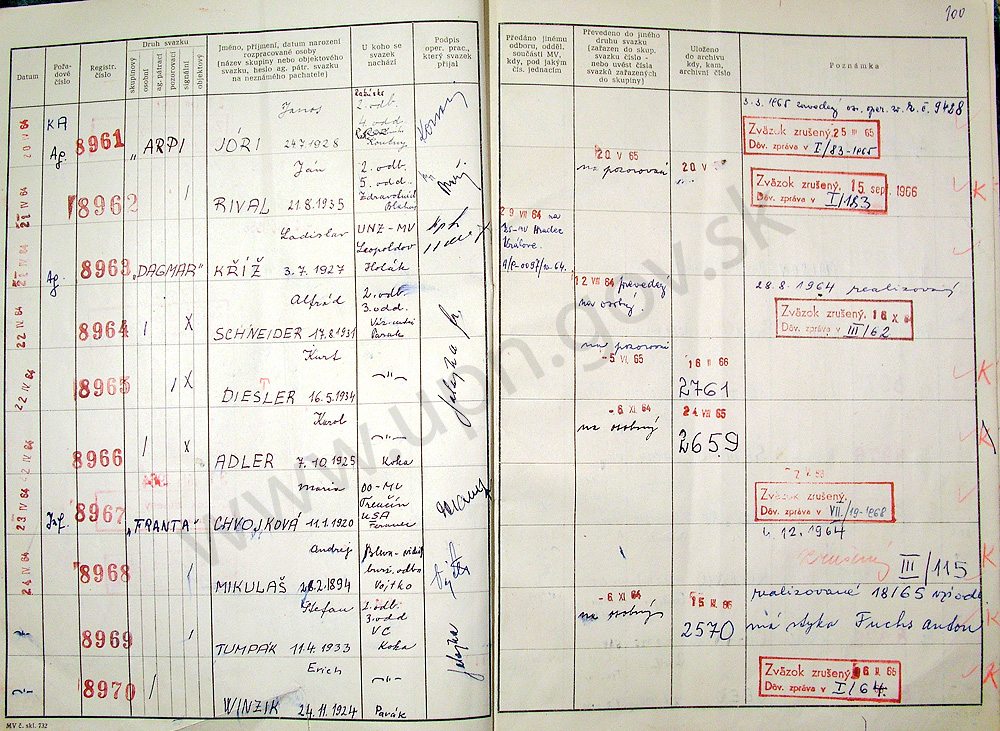 100
Datum
Pořa-
dové
číslo
Registr.
číslo
Druh svazku
skupinový
osobní
ag. pátrací
pozorovací
signální
objektový
Jméno, příjmení, datum narození
rozpracované osoby
(název skupiny nebo objektového
svazku, heslo ag. pátr. svazku
na neznámého pachatele)
U koho se
svazek
nachází
Podpis
oper. prac.,
který svazek
přijal
Předáno jinému
odboru, odděl.
součásti MV,
kdy, pod jakým
čís. jednacím
Převedeno do jiného
druhu svazku
(zařazen do skup.
svazku číslo -
nebo uvést čísla
svazků zařazených
do skupiny)
Uloženo
do archivu
kdy, kam,
archivní číslo
Poznámka
20 IV 64
KA
Ag.
8961
"ARPI
Janos
JÓRI 24.7.1928
2. odb.
4. odd.
Koutny
3. 3. 1965
9428
Zväzok zrušený. 25 III 65
Dův. zpráva v I/83-1965
21 IV 64
8962
Ján
RIVAL 21.8.1935
2. odb.
5. odd.
20 V 65
na pozorovací
20 V
Zväzok zrušený. 15 sept. 1966
Dův. zpráva v I/183
21 IV 64
Ag.
8963
"DAGMAR"
Ladislav
KŘÍŽ 3.7.1927
UNZ - MV
Leopoldov
Holák
29 VII 64 na
KS-MV Hradec
Králove.
22 IV 64
8964
Alfréd
SCHNEIDER 17.8.1931
2. odb.
3. odd.
12 VIII 64 prevedený
na osobný
28. 8. 1964 realizovaný
Zväzok zrušený. 16 X 64
Dův. zpráva v III/62
22 IV 64
8965
Kurt
DIESLER 16.5.1934
—"—
na pozorovací
-5 VI. 65
16 II 66
2761
22 IV 64
8966
Karol
ADLER 7.10.1925
—"—
Koka
-6. XI. 64
na osobný
24 VIII 65
2659
23 IV 64
Inf.
8967
"FRANTA"
Maria
CHVOJKOVÁ 11.1.1920
OO - MV
Trenčín
Zväzok zrušený.
Dův. zpráva v VII./19-1968
24 IV 64
8968
Andrej
MIKULÁŠ 28.2.1894
Vojtko
4. 12. 1964
zrušený III/115
8969
Štefan
TUMPÁK 11.4.1933
2. odb.
3. odd
VC
Koka
-6. XI. 64
na osobný
2570
realizované 18/65
má styka Fuchs anton
8970
Erich
WINZIK 24.11.1924
—"—
Pavák
Zväzok zrušený 6 II. 65
Dův. zpráva v I/64.
MV č. skl. 732
www.upn.gov.sk